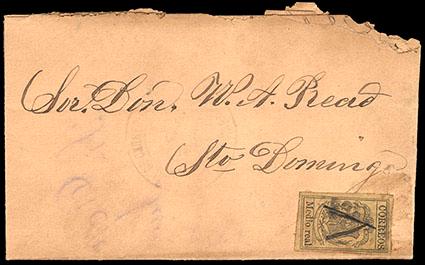 Sor. Don. W. A. Read
Sto Domingo
CORREOS
Medio real